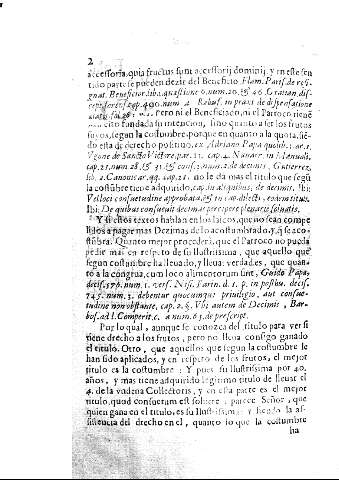 2
accessoria, quia fructus sunt accessorij dominij, y en este sen
tido parte se pueden dezir del Beneficio Flam. Paris. de resi
gnat. Beneficior. lib. 4. quæstione 6. num. 20. & 46. Gratian. dis
cept. forens. cap. 400. num. 4. Rebuf. in praxi de dispensatione
 Pero ni el Beneficiado, ni el Parroco tiene
fundada su intencion, sino quanto a ser los frutos
suyos, segun la costumbre, porque en quanto a la quota, sié-
do esta de derecho positivo, ex Adriano Papa quolib. 1. ar. 1.
Vgone de Sancto Victore, par. 11. cap. 4. Nauarr. in Manuali,
cap. 21. num. 28. & 31. & cons. num. 2. de decimis, Gutierrez,
lib. 2. Canonicar. qq. cap. 21. no le da mas el titulo que segũ
la costũbre tiene adquirido, cap. in aliquibus, de decimis. Ibi:
Vel loci consuetudine approbata, & in cap. dilecti, eodem titul.
Ibi: De quibus consueuit decimas percipere plenariè soluatis.
Y si estos textos hablan en los laicos, que no sean compe
lidos a pagar mas Dezimas de lo acostumbrado, y q̃ se aco
stũbra. Quanto mejor procederà, que el Parroco no pueda
pedir mas en respeto de su Ilustrissima, que aquello que
segun costumbre ha lleuado, y lleua: verdad es, que quan-
to a la congrua, cum loco alimentorum sint, Guido Papa,
decis. 576. num. 1. vers. Nisi. Parin. d. 1. p. in posthu. decis.
745. num. 3. debentur quocumque priuilegio, aut consue-
tudine non obstante, cap. 2. §. Vos autem de Decimis, Bar-
bos. ad l. Comperit, C. a num. 65. de præscript.
Por lo qual, aunque se conozca del titulo para ver si
tiene derecho a los frutos, pero no lleua consigo ganado
el titulo. Otro, que aquellos que segun la costumbre le
han sido aplicados, y en respeto de los frutos, el mejor
titulo es la costumbre: Y pues su Ilustrissima por 40.
años, y mas tiene adquirido legitimo titulo de lleuar el
4. de la vndena Collectoris, y en esta parte es el mejor
titulo, quod consuetum est soluere: parece Señor, que
quien gana en el titulo, es su Ilustrissima: y siendo la as-
sistencia del drecho en el, quanto lo que la costumbre
ha